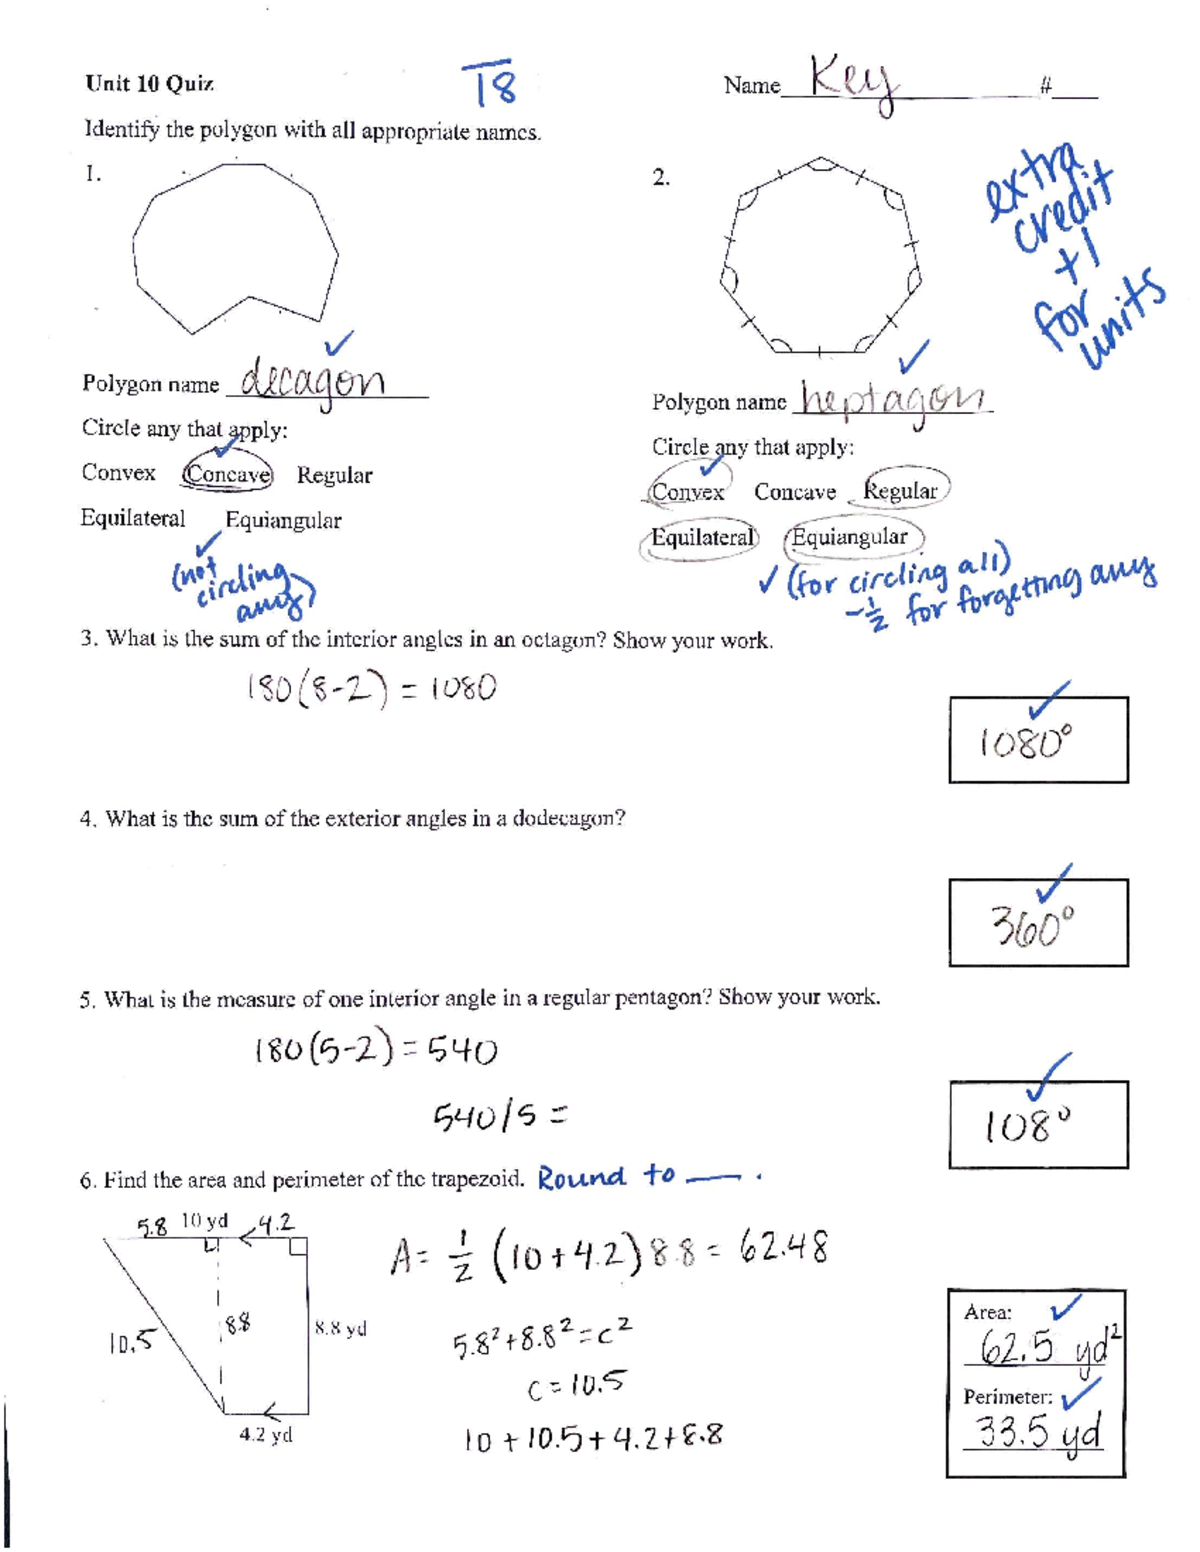 Unit 10 Quiz
18
Name Key #
Identify the polygon with all appropriate names.
1.
2.
extra
credit
+1
for
units
Polygon name decagon
Circle any that apply:
Convex Concave Regular
Equilateral Equiangular
(not
circling
any)
Polygon name heptagon
Circle any that apply:
Convex Concave Regular
Equilateral Equiangular
✓ (for circling all)
-1/2 for forgetting any
3. What is the sum of the interior angles in an octagon? Show your work.
180(8-2) = 1080
1080°
4. What is the sum of the exterior angles in a dodecagon?
360°
5. What is the measure of one interior angle in a regular pentagon? Show your work.
180(5-2) = 540
540/5 =
108°
6. Find the area and perimeter of the trapezoid. Round to __.
5.8 10 yd 4.2
10.5
8.8
8.8 yd
4.2 yd
A = 1/2 (10+4.2) 8.8 = 62.48
5.8²+8.8²=c²
c=10.5
10 + 10.5 + 4.2 + 8.8
Area:
62.5 yd²
Perimeter:
33.5 yd